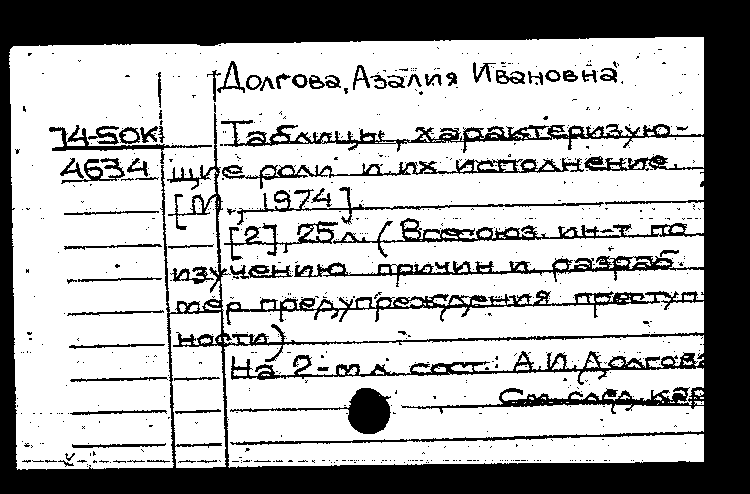 Долгова, Азалия Ивановна.
74-50К Таблицы, характеризую-
4634 щие роли и их исполнение.
[М., 1974].
[2], 25л. (Всесоюз. ин-т по
изучению причин и разраб.
мер предупреждения преступ
ности).
На 2-м л. сост.: А.И.Долгова
См. след. кар